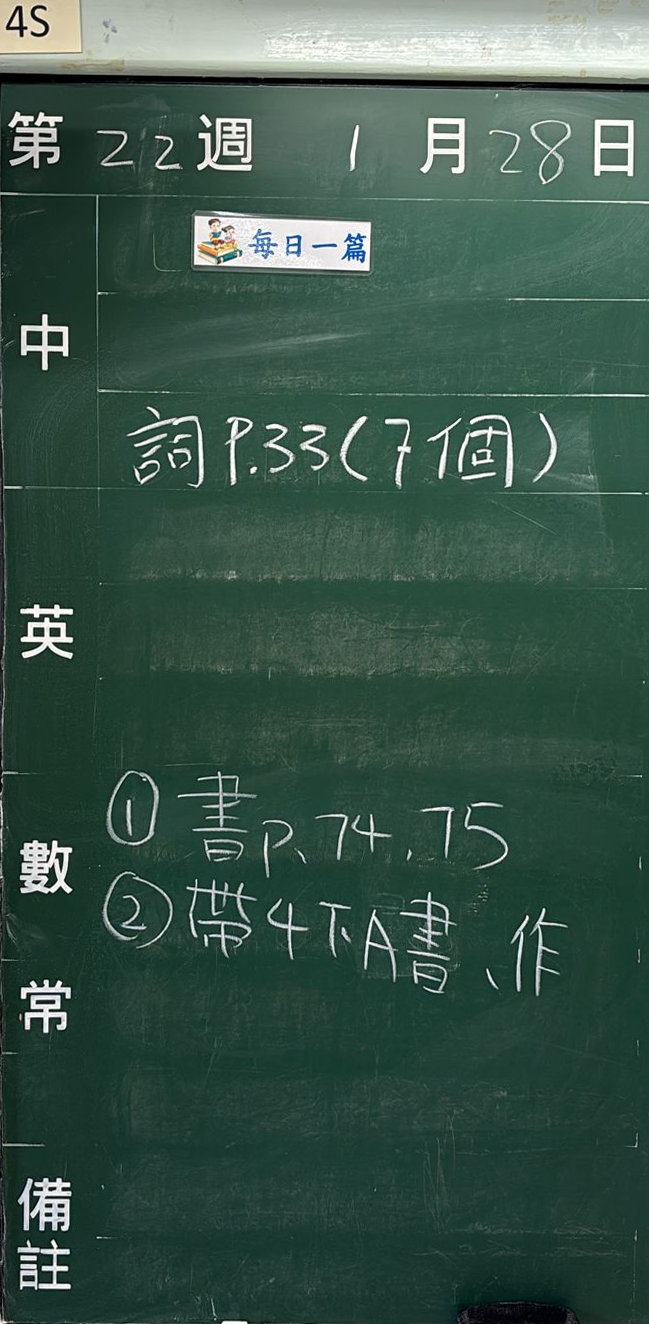 4S
第 22 週 1 月 28 日
每日一篇
中
詞 P.33 (7個)
英
① 書 P.74、75
數
② 帶4下A書、作
常
備註